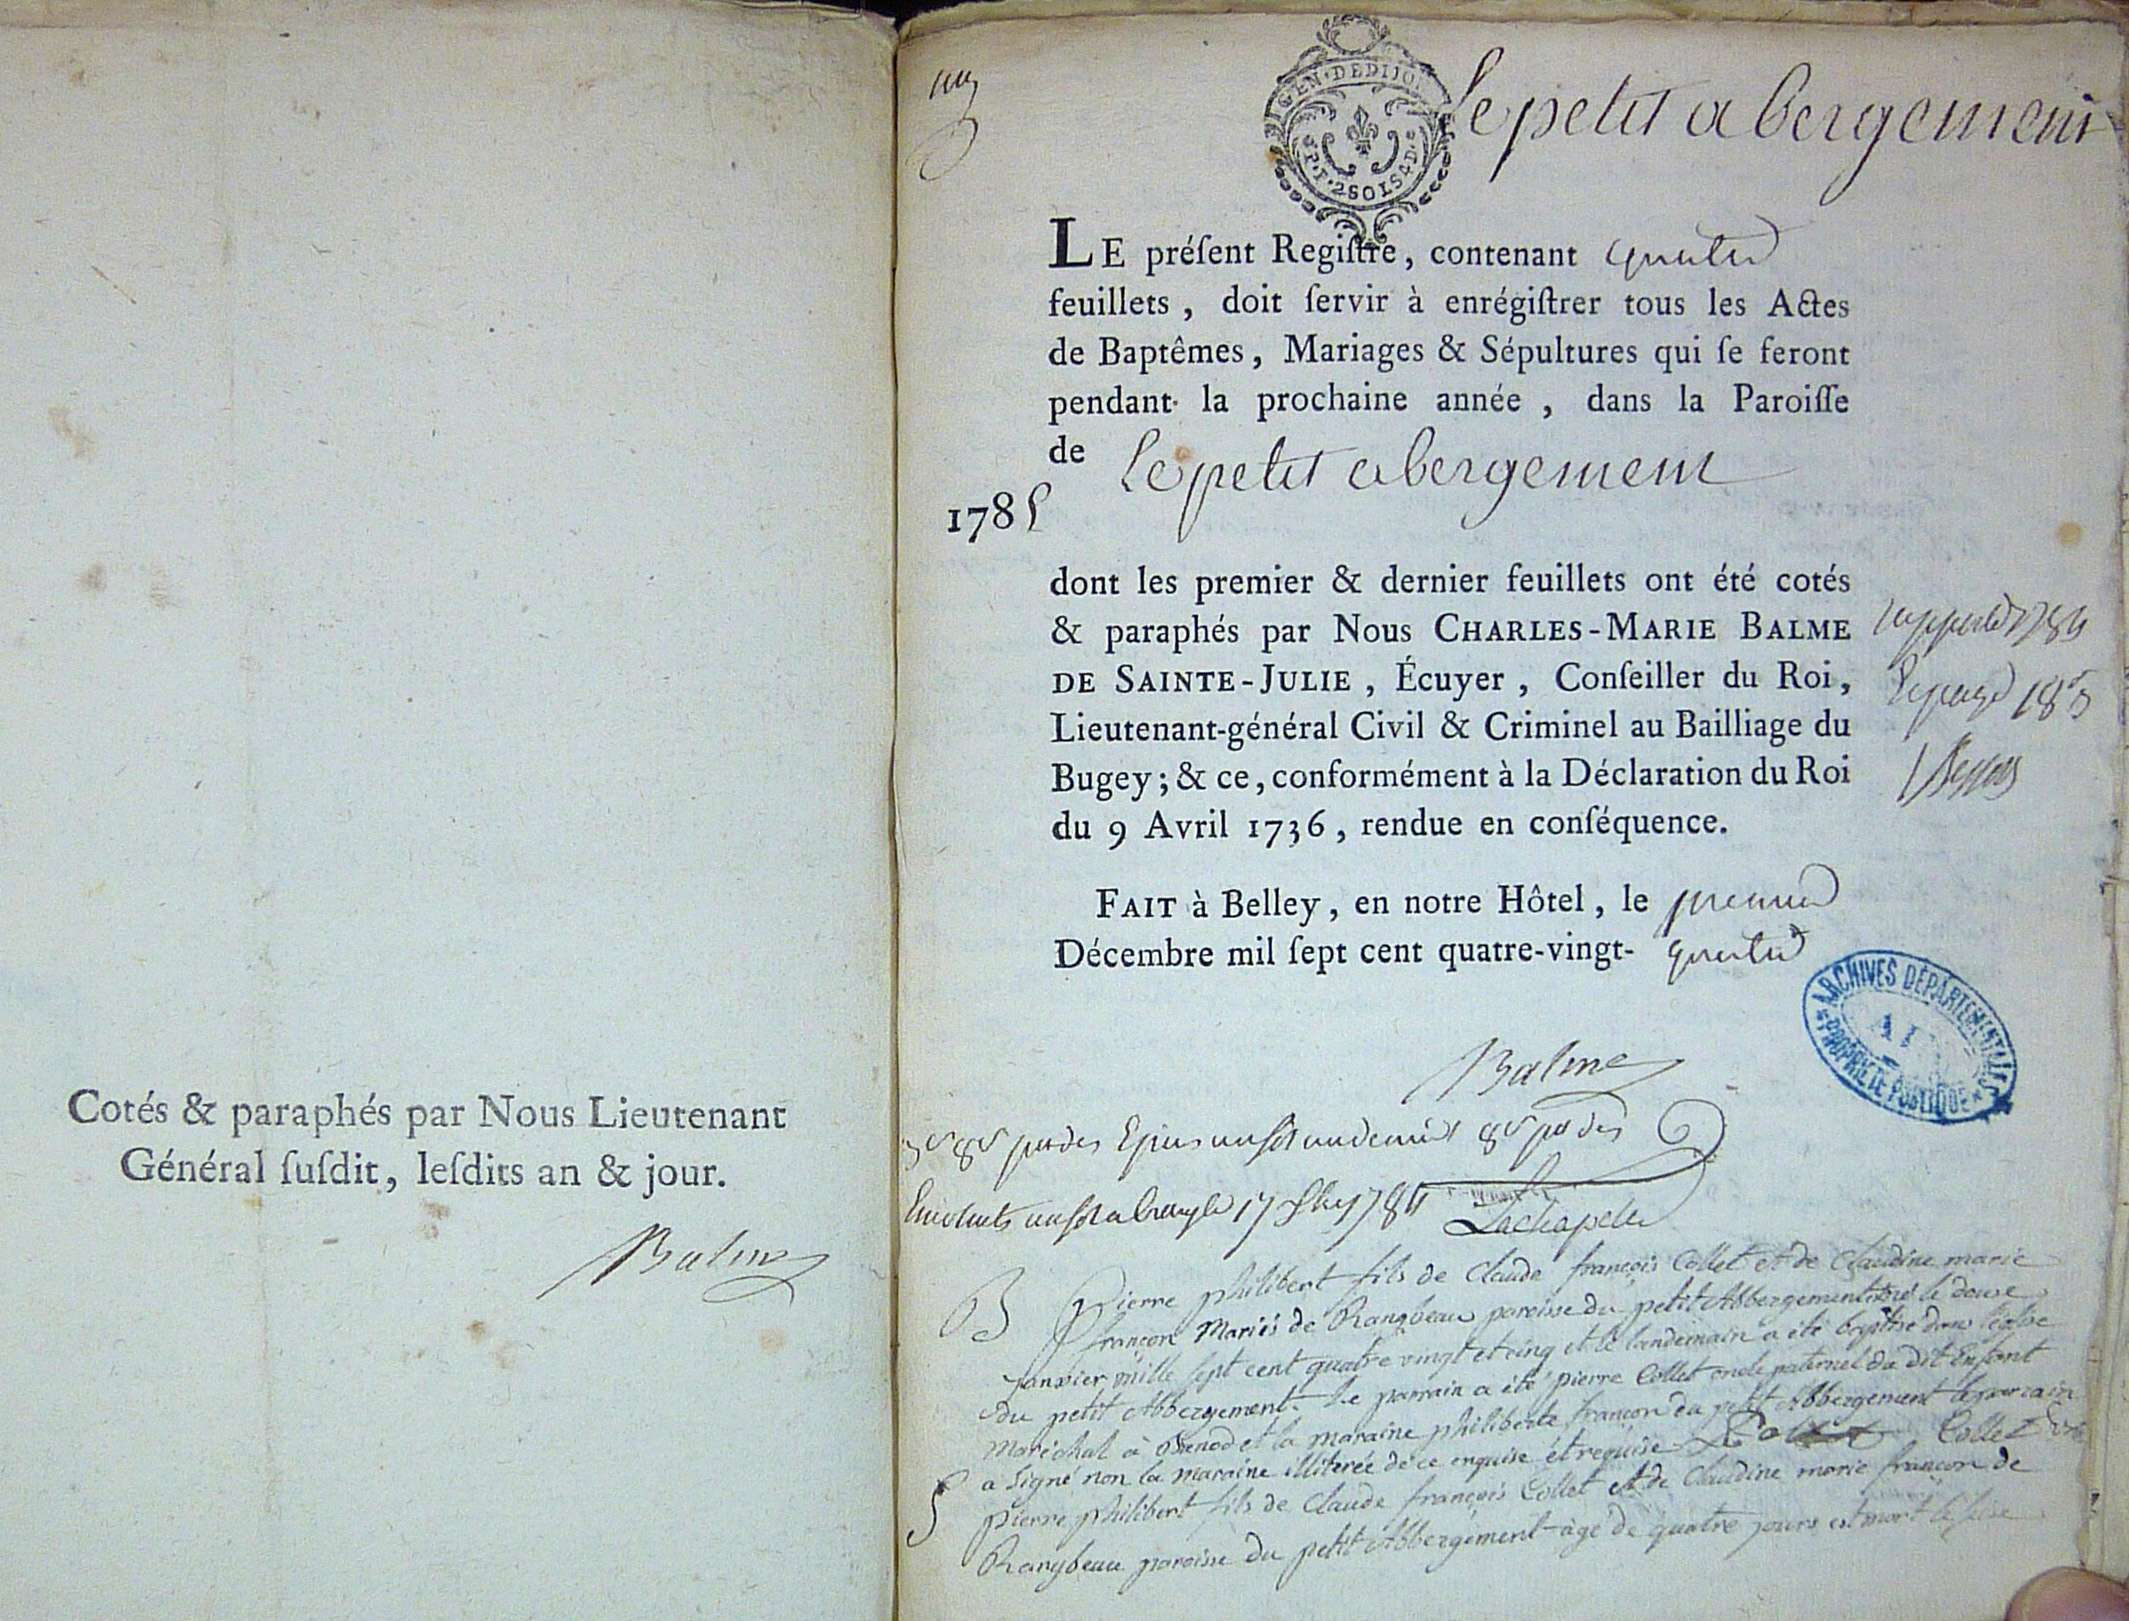 Cotés & paraphés par Nous Lieutenant
Général ſuſdit, leſdits an & jour.
Balme
GEN · DE DIJON
2 SOLS 4 D.
Le petit abergement
LE préſent Regiſtre, contenant quatre
feuillets, doit ſervir à enrégiſtrer tous les Actes
de Baptêmes, Mariages & Sépultures qui ſe feront
pendant la prochaine année, dans la Paroiſſe
de Le petit abergement
1785
dont les premier & dernier feuillets ont été cotés
& paraphés par Nous CHARLES-MARIE BALME
DE SAINTE-JULIE, Écuyer, Conſeiller du Roi,
Lieutenant-général Civil & Criminel au Bailliage du
Bugey; & ce, conformément à la Déclaration du Roi
du 9 Avril 1736, rendue en conſéquence.
FAIT à Belley, en notre Hôtel, le premier
Décembre mil ſept cent quatre-vingt- quatre
ARCHIVES DÉPARTEMENTALES
AIN
PROPRIÉTÉ PUBLIQUE
Balme
17 1784 Lachapelle
B Pierre philibert fils de Claude françois Collet et de Claudine marie
françon Mariés de Rangbeau paroisse du petit Abbergement né le douze
janvier mille sept cent quatre vingt et cinq et le landemain a été baptisé dans l'église
du petit Abbergement. Le parrain a été pierre Collet oncle paternel du dit Enfant
Maréchal à Brenod et la maraine philiberte françon du petit Abbergement le parrain
a signé non la maraine illiterée de ce enquise et requise Collet
S pierre philibert fils de Claude françois Collet et de Claudine marie françon de
Rangbeau paroisse du petit Abbergement agé de quatre jours est mort le seise